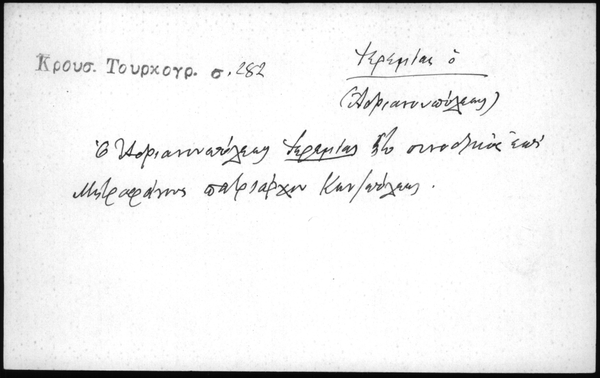 Κρουσ. Τουρκογρ. σ. 282
Ἱερεμίας ὁ
(Ἀδριανουπόλεως)
Ὁ Ἀδριανουπόλεως Ἱερεμίας ἦτο συνοδικὸς ἐπὶ
Μητροφάνους πατριάρχου Κων/πόλεως.